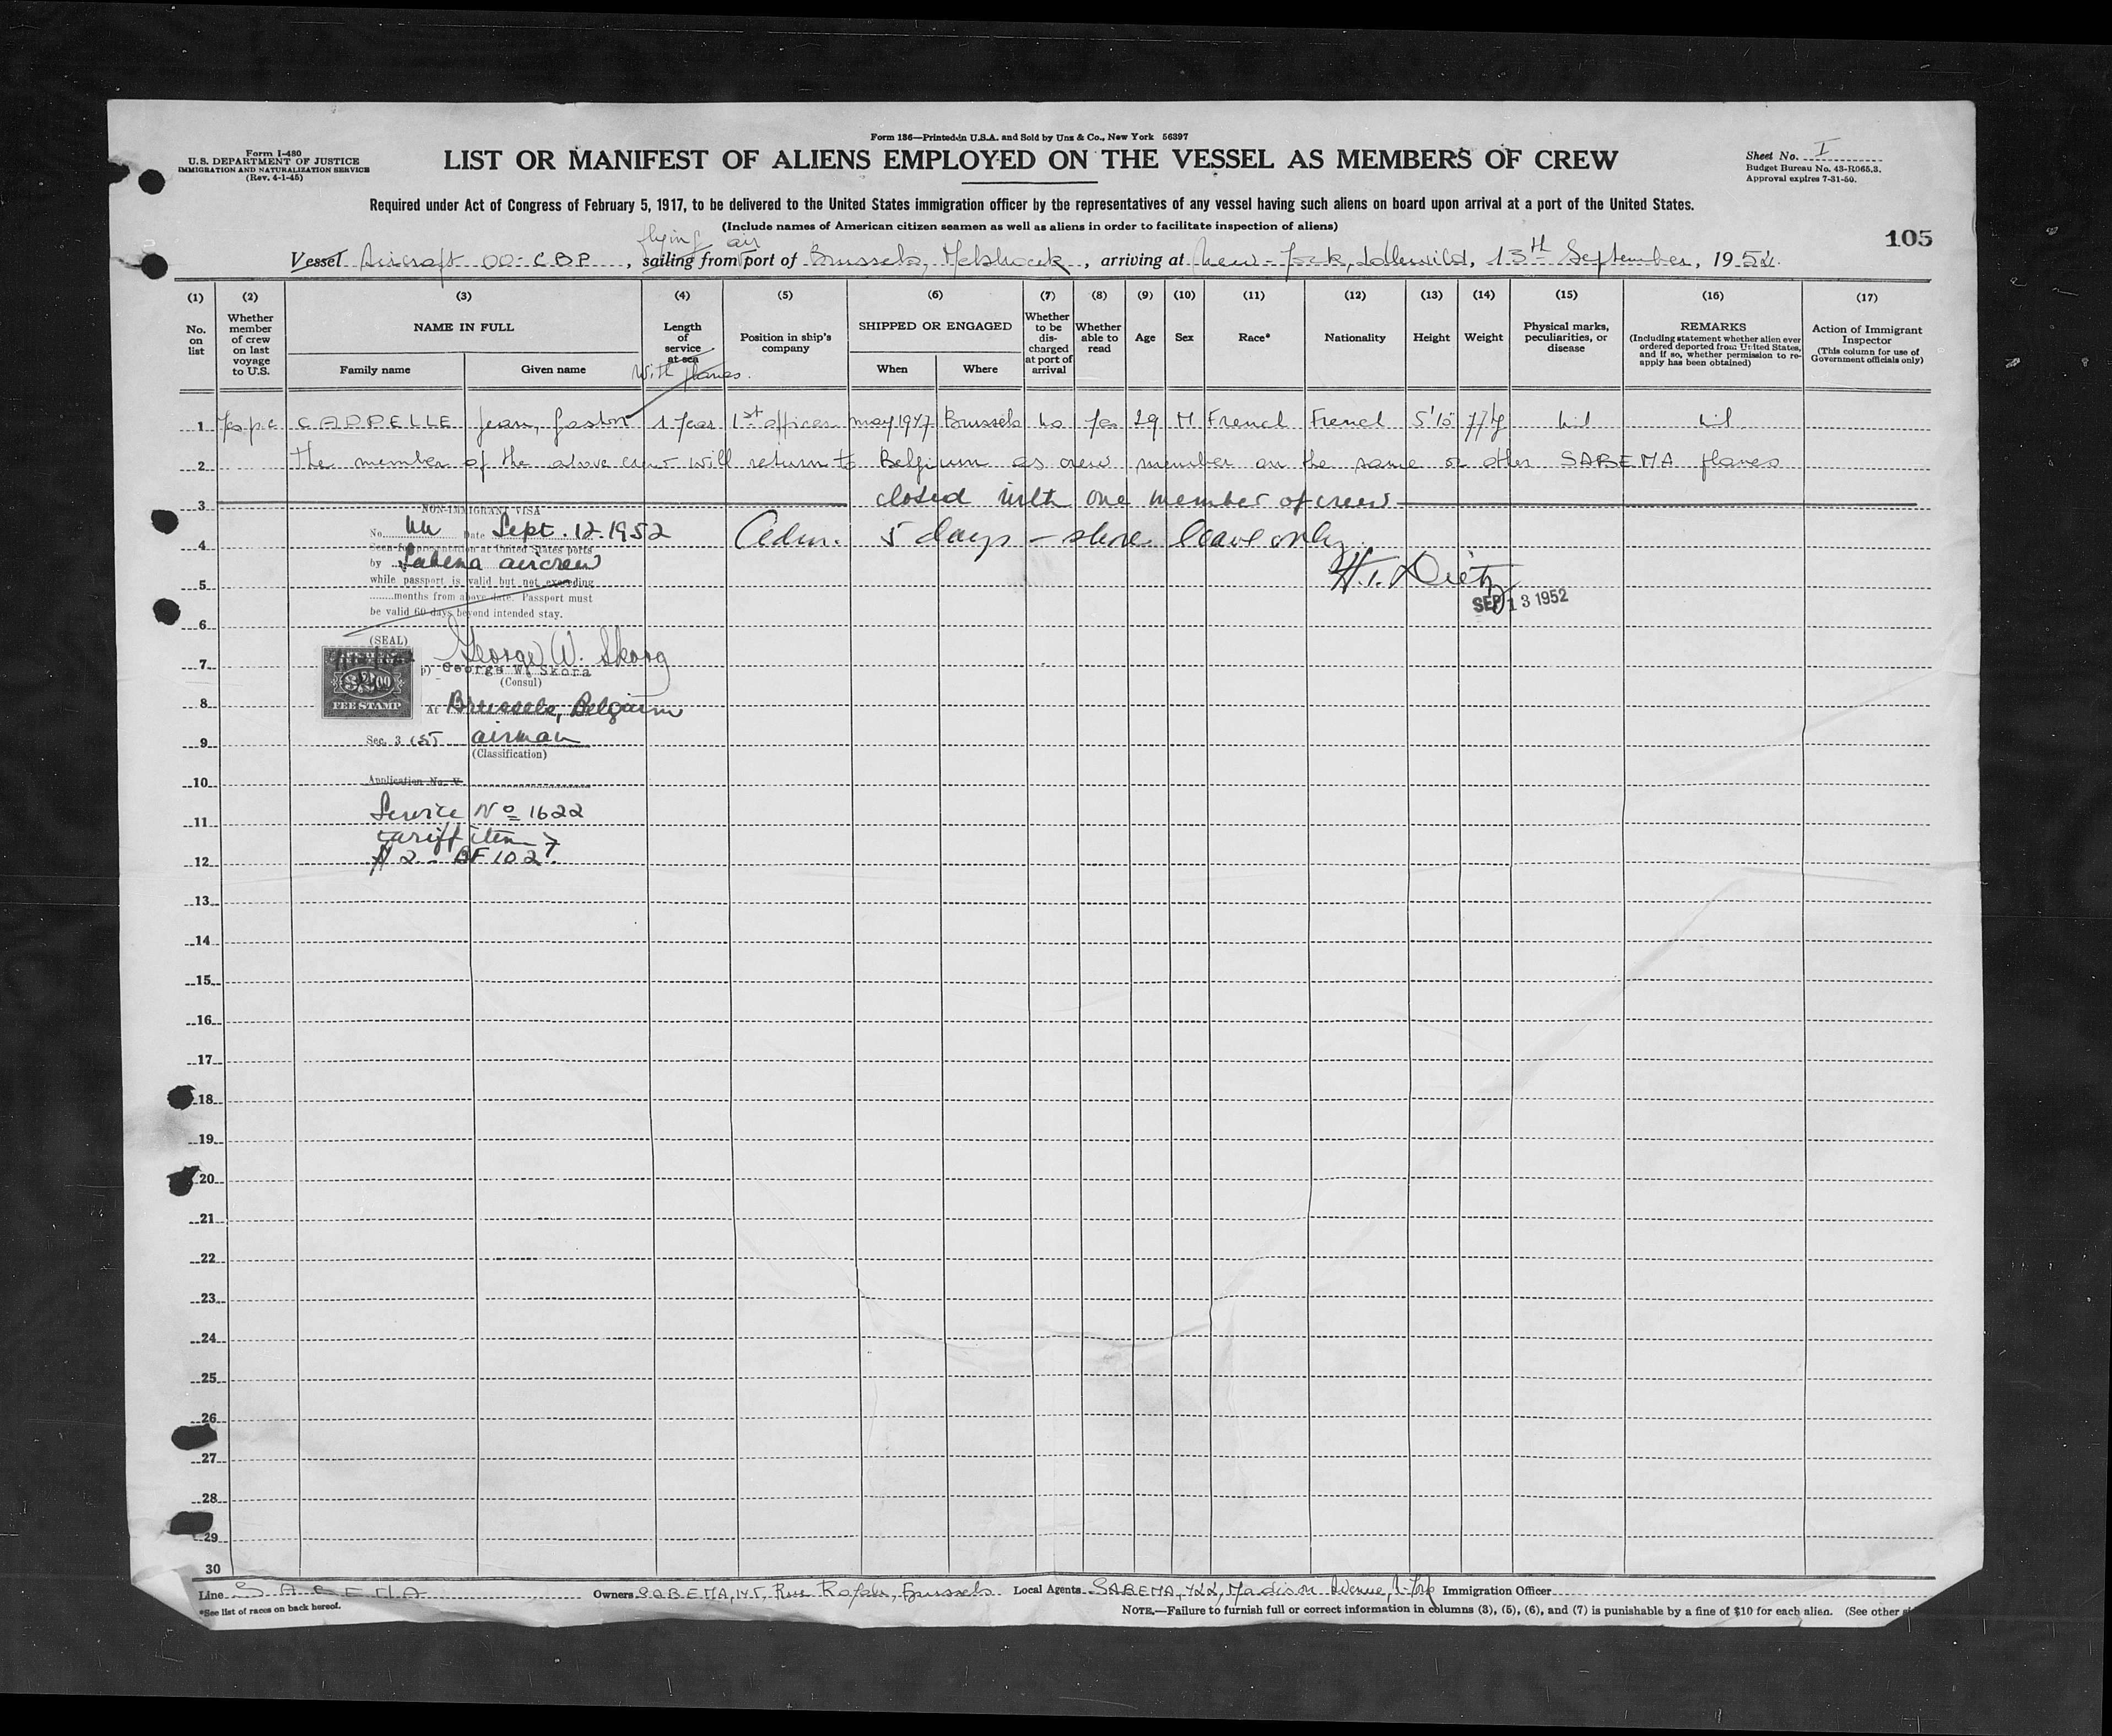 Form 136—Printed in U.S.A. and Sold by Unz & Co., New York 56397
Form I-480
U.S. DEPARTMENT OF JUSTICE
IMMIGRATION AND NATURALIZATION SERVICE
(Rev. 4-1-45)
LIST OR MANIFEST OF ALIENS EMPLOYED ON THE VESSEL AS MEMBERS OF CREW
Sheet No. I
Budget Bureau No. 43-R065.3.
Approval expires 7-31-50.
Required under Act of Congress of February 5, 1917, to be delivered to the United States immigration officer by the representatives of any vessel having such aliens on board upon arrival at a port of the United States.
(Include names of American citizen seamen as well as aliens in order to facilitate inspection of aliens)
105
flying air
Vessel Aircraft OO-CBP, sailing from port of Brussels, Melsbroek, arriving at New-York, Idlewild, 13th September, 1952.
(1) (2) (3) (4) (5) (6) (7) (8) (9) (10) (11) (12) (13) (14) (15) (16) (17)
No. on list
Whether member of crew on last voyage to U.S.
NAME IN FULL
Family name
Given name
Length of service at sea
with planes.
Position in ship's company
SHIPPED OR ENGAGED
When
Where
Whether to be discharged at port of arrival
Whether able to read
Age
Sex
Race*
Nationality
Height
Weight
Physical marks, peculiarities, or disease
REMARKS
(Including statement whether alien ever ordered deported from United States, and if so, whether permission to reapply has been obtained)
Action of Immigrant Inspector
(This column for use of Government officials only)
1 CAPPELLE Jean, Gaston 1 Year 1st officer may 1947 Brussels no yes 29 M French French nil nil
2 The member of the above crew will return to Belgium as crew member on the same or other SABENA planes
3 closed with one member of crew
NON-IMMIGRANT VISA
No. Date Sept. 12. 1952
4 Adm. 5 days - shore leave only.
Seen for presentation at United States ports
by Sabena aircrew
H. Dietz
while passport is valid but not exceeding
5
months from above date. Passport must
SEP 13 1952
be valid 60 days beyond intended stay.
6
(SEAL)
George W. Skora
7
George W. Skora
(Consul)
$2.00
FEE STAMP
8 At Brussels, Belgium
9 Sec. 3 (5) airman
(Classification)
10 Application No. V
Service No 1622
11
tariff item 7
12 $2 - BF 102.
13
14
15
16
17
18
19
20
21
22
23
24
25
26
27
28
29
30
Line SABENA Owners SABENA, 145, Rue Royale, Brussels Local Agents SABENA, 422, Madison Avenue, N-York Immigration Officer
*See list of races on back hereof.
NOTE.—Failure to furnish full or correct information in columns (3), (5), (6), and (7) is punishable by a fine of $10 for each alien. (See other